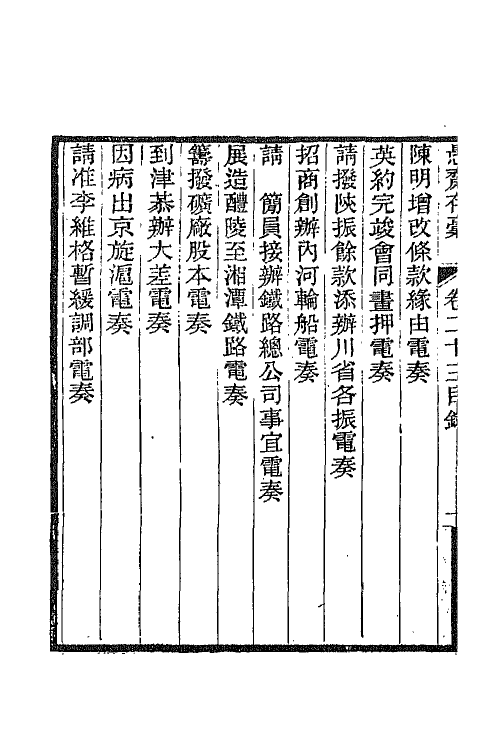 愚齋存稾 卷二十三目錄 一
陳明增改條款緣由電奏
英約完竣會同畫押電奏
請撥陜振餘款添辦川省各振電奏
招商創辦內河輪船電奏
請 簡員接辦鐵路總公司事宜電奏
展造醴陵至湘潭鐵路電奏
籌撥礦廠股本電奏
到津恭辦大差電奏
因病出京旋滬電奏
請准李維格暫緩調部電奏